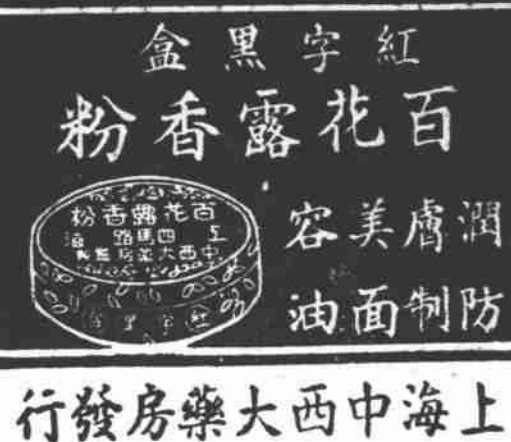 紅字黑盒
百花露香粉
潤膚美容
防制面油
百花露香粉
上海四馬路
中西大藥房監製
紅字黑盒
上海中西大藥房發行